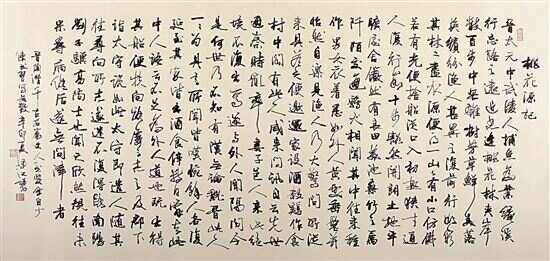 桃花源記
晉太元中武陵人捕魚為業緣溪
行忘路之遠近忽逢桃花林夾岸
數百步中無雜樹芳草鮮美落
英繽紛漁人甚異之復前行欲窮
其林林盡水源便得一山山有小口仿佛
若有光便捨船從口入初極狹才通
人復行數十步豁然開朗土地平
曠屋舍儼然有良田美池桑竹之屬
阡陌交通雞犬相聞其中往來種
作男女衣著悉如外人黃髮垂髫並
怡然自樂見漁人乃大驚問所從
來具答之便要還家設酒殺雞作食
村中聞有此人咸來問訊自云先世
避秦時亂率妻子邑人來此絕
境不復出焉遂與外人間隔問今
是何世乃不知有漢無論魏晉此人
一一為具言所聞皆嘆惋餘人各復
延至其家皆出酒食停數日辭去此
中人語云不足為外人道也既出得
其船便扶向路處處誌之及郡下
詣太守說如此太守即遣人隨其
往尋向所誌遂迷不復得路南陽
劉子驥高尚士也聞之欣然規往未
果尋病終後遂無問津者
晉陶潛千古名篇文人